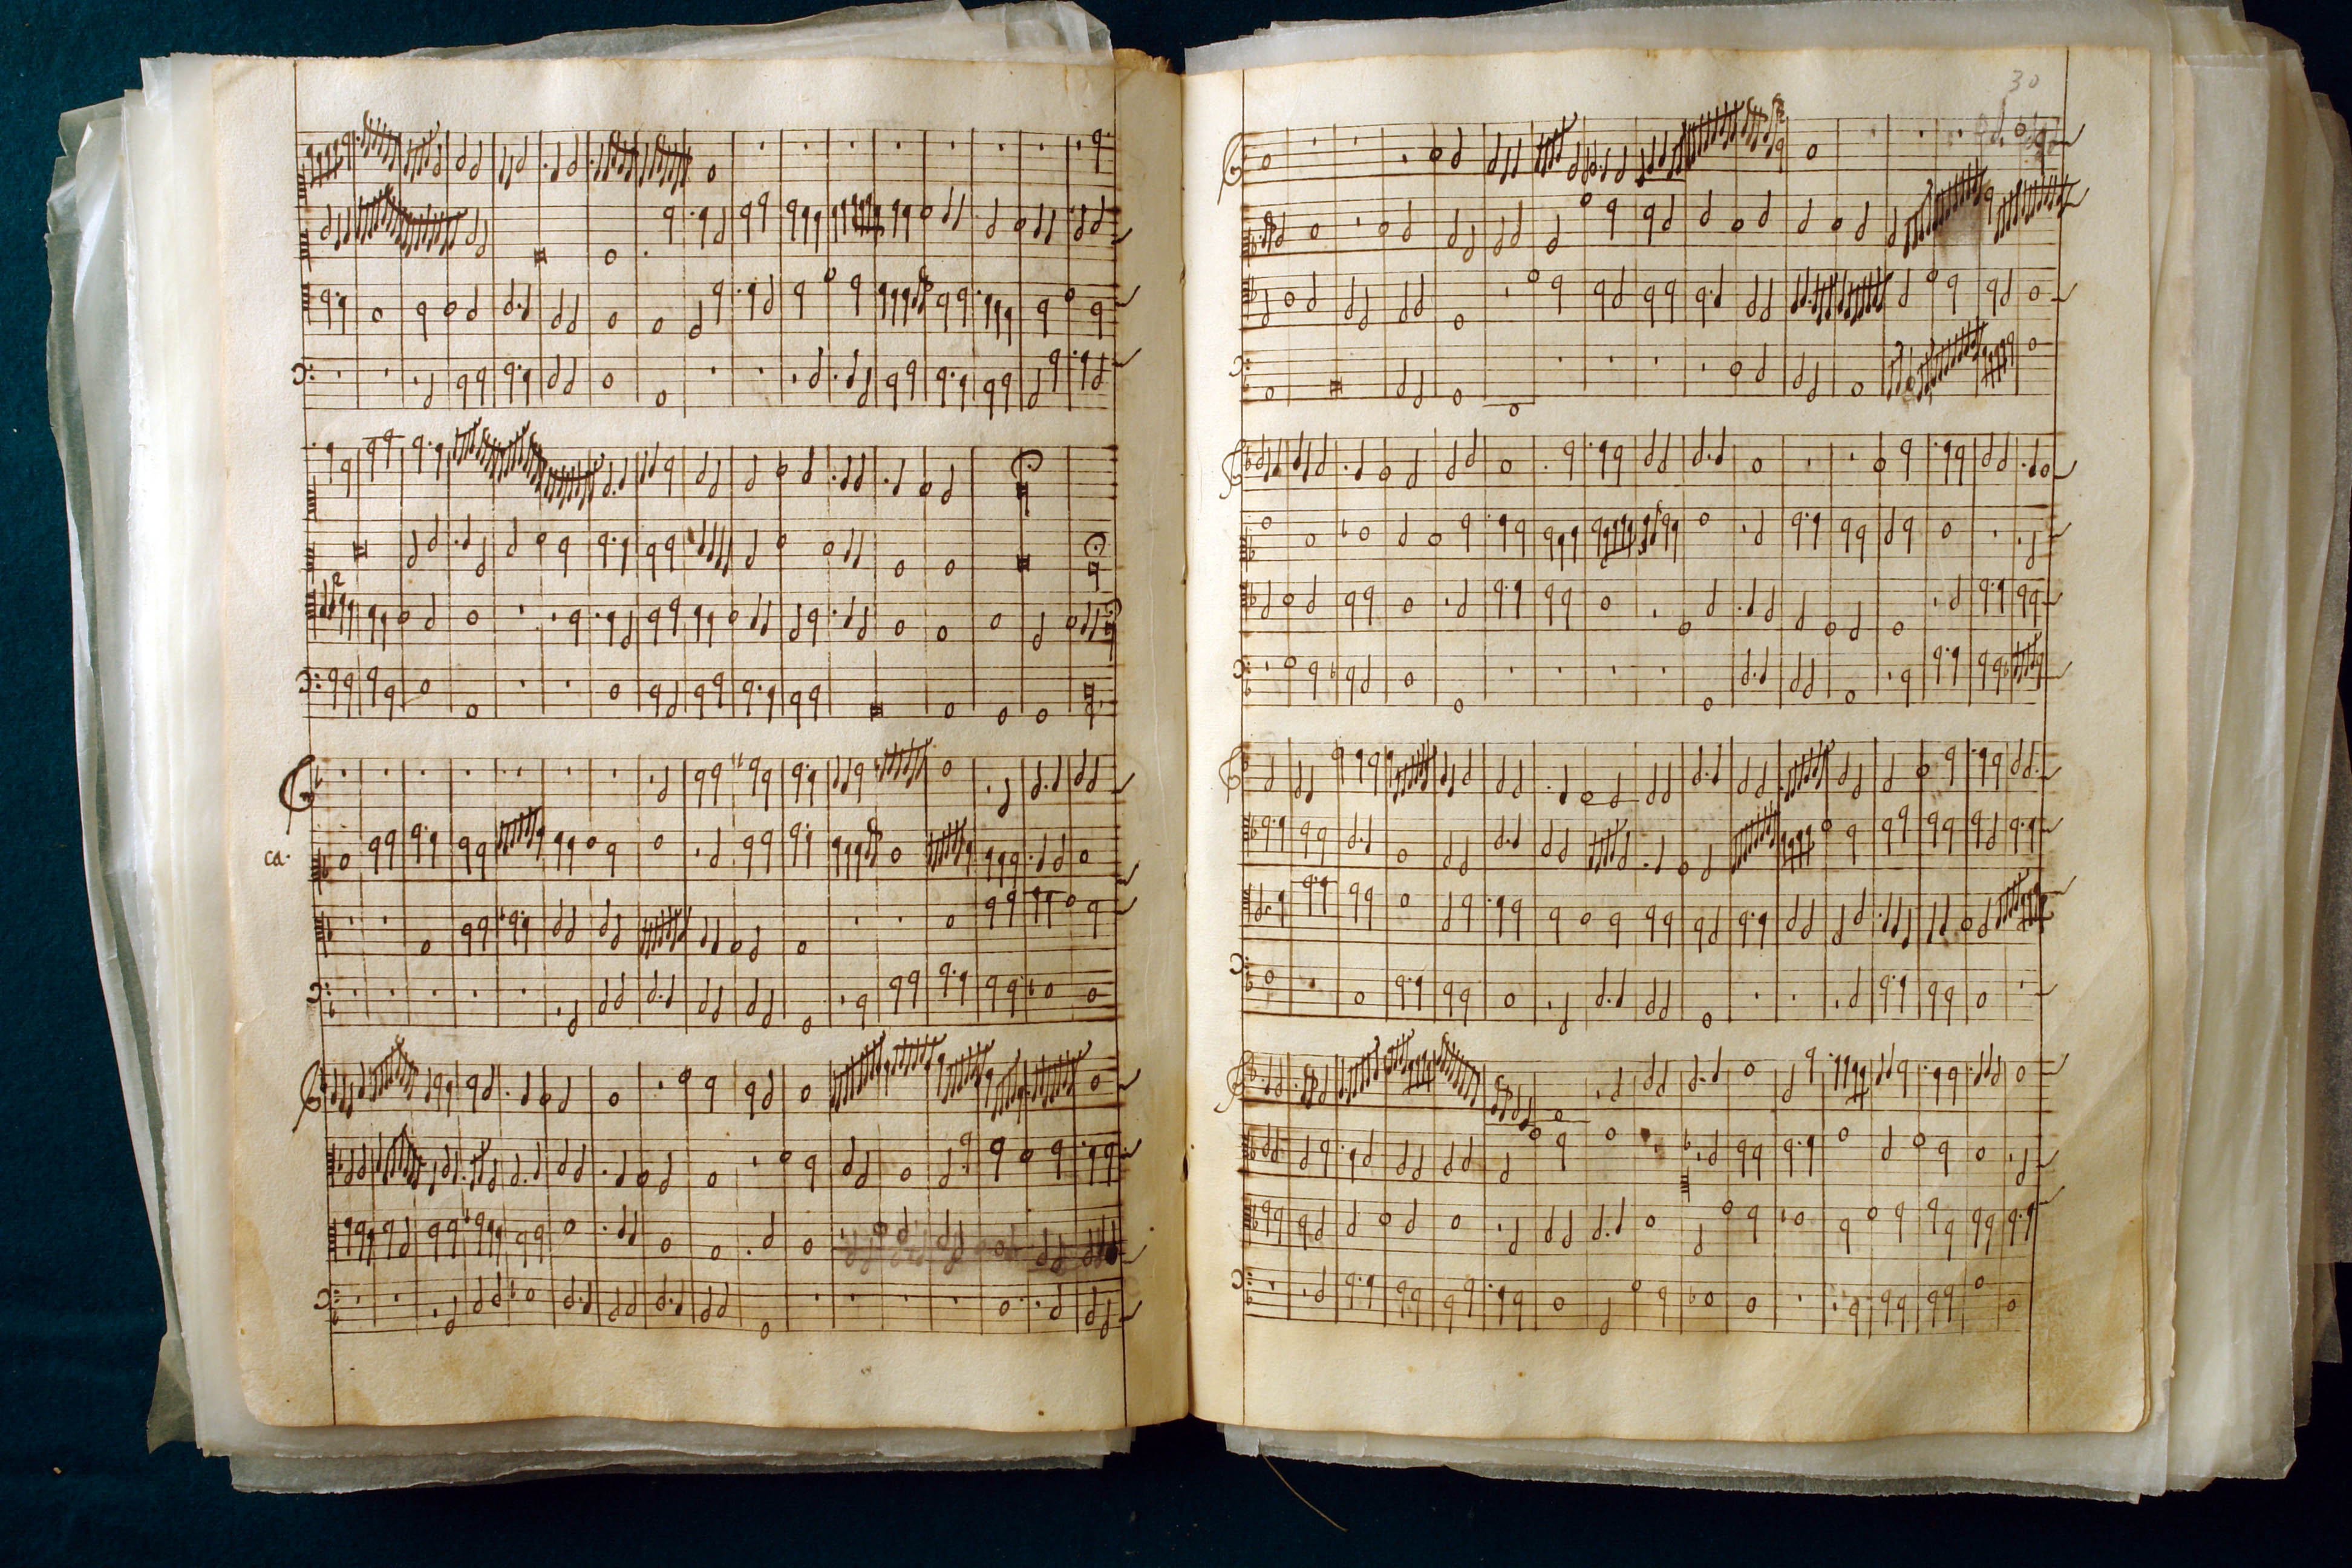 30
ca.